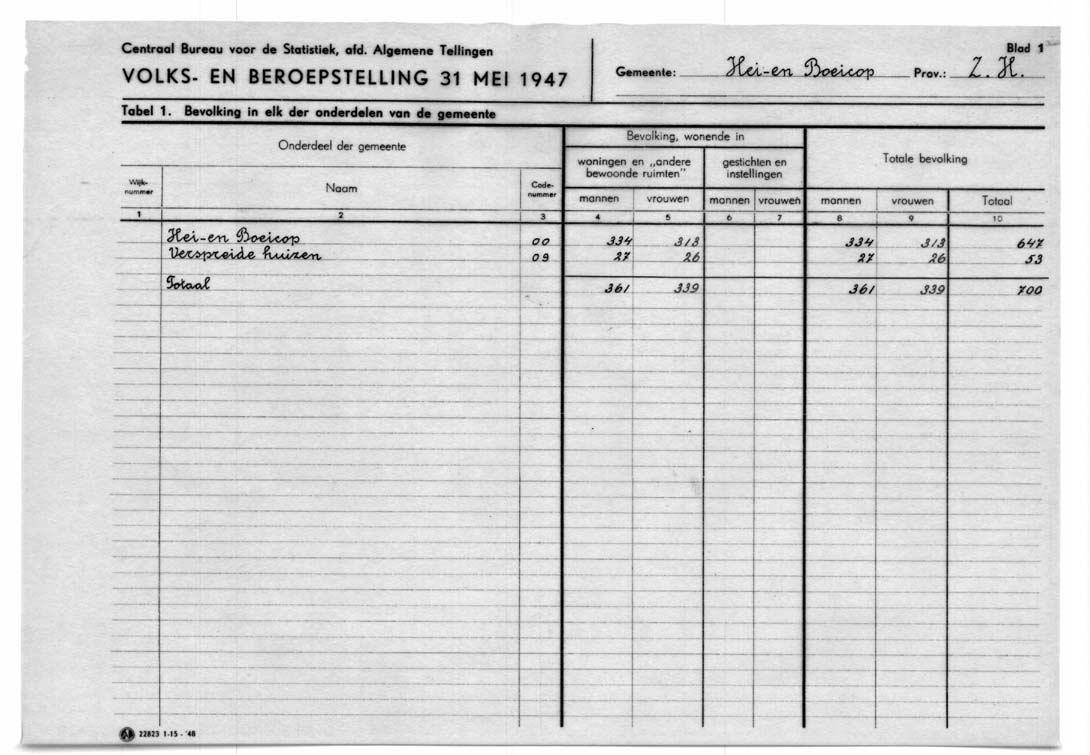 Centraal Bureau voor de Statistiek, afd. Algemene Tellingen
VOLKS- EN BEROEPSTELLING 31 MEI 1947
Blad 1
Gemeente: Hei-en Boeicop Prov.: Z. H.
Tabel 1. Bevolking in elk der onderdelen van de gemeente
Onderdeel der gemeente
Bevolking, wonende in
Totale bevolking
woningen en „andere bewoonde ruimten"
gestichten en instellingen
Wijk-nummer Naam Code-nummer mannen vrouwen mannen vrouwen mannen vrouwen Totaal
1 2 3 4 5 6 7 8 9 10
Hei-en Boeicop 00 334 313 334 313 647
Verspreide huizen 09 27 26 27 26 53
Totaal 361 339 361 339 700
22823 1-15-'48